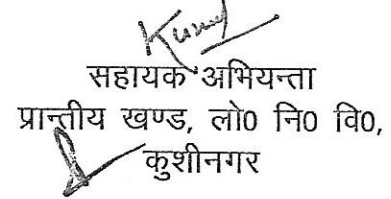 सहायक अभियन्ता
प्रान्तीय खण्ड, लो0 नि0 वि0,
कुशीनगर